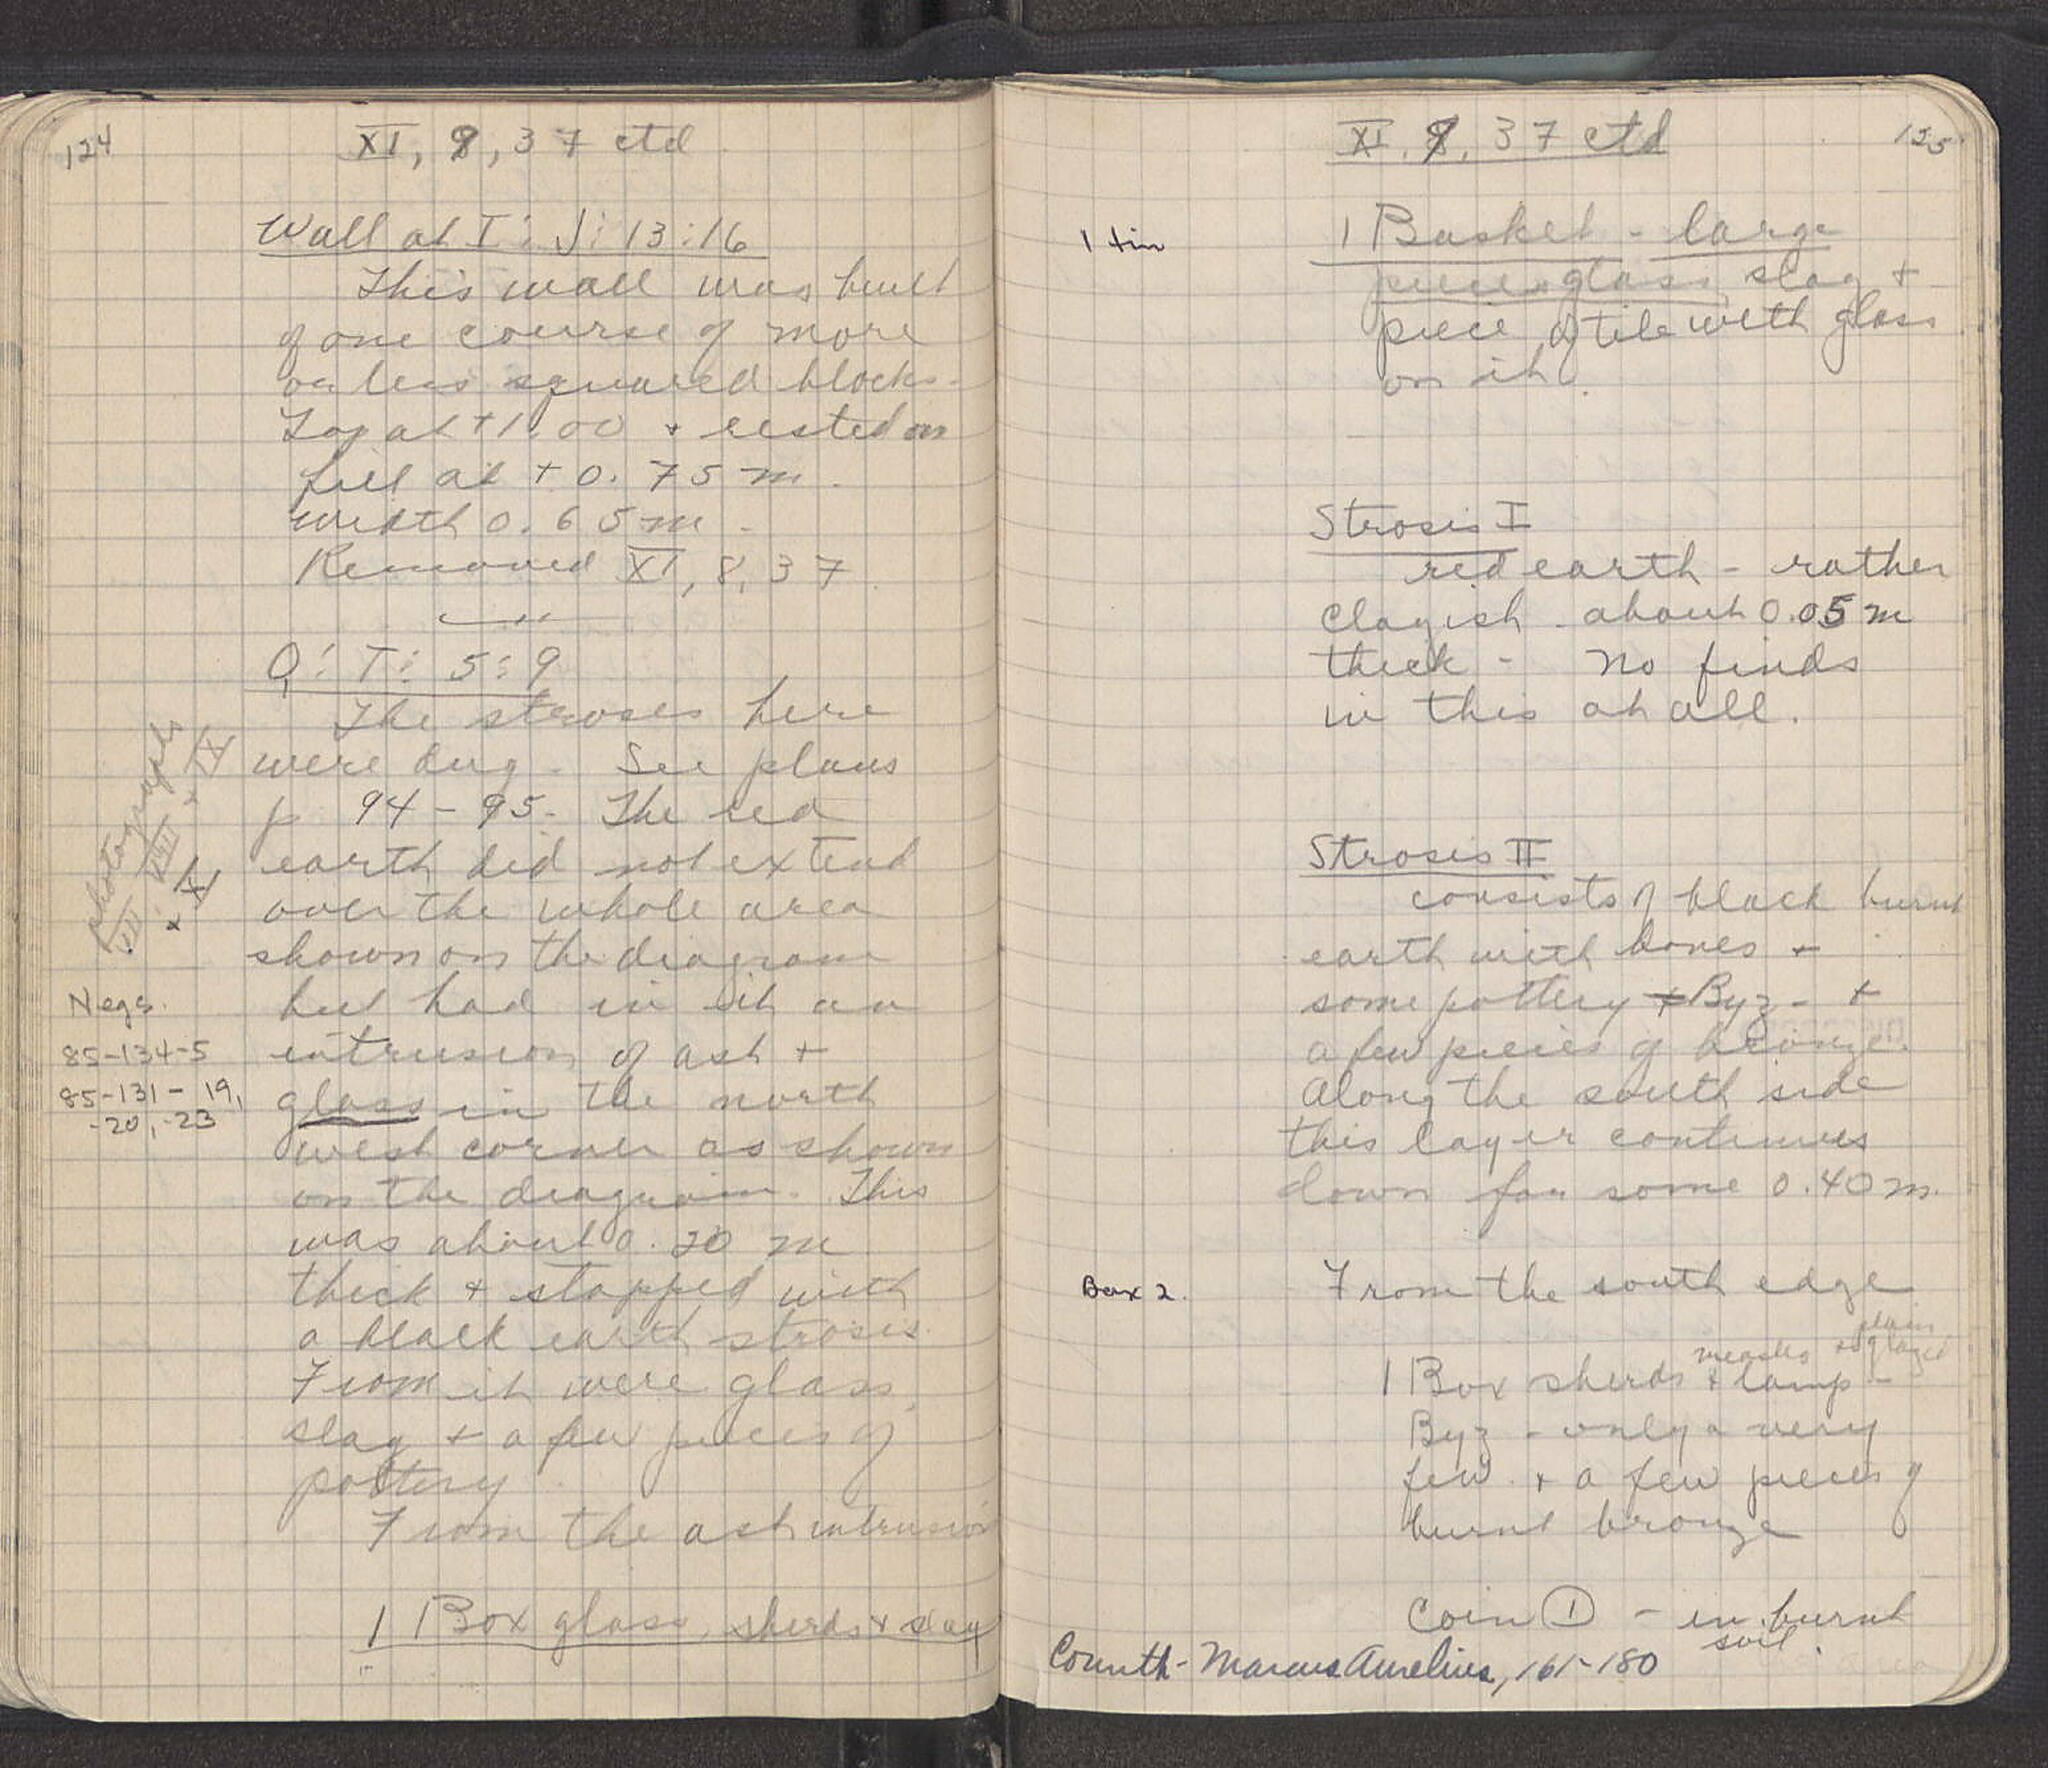 124
XI, 8, 37 ctd
Wall at I : J : 13 : 16
This wall was built
of one course of more
or less squared blocks -
Top at +1.00 + rested on
fill at + 0.75 m.
width 0.65 m -
Removed XI, 8, 37.
Q : T : 5 : 9
The stroses here
were dug - See plans
p 94 - 95 - The red
earth did not extend
over the whole area
shown on the diagram
but had in it an
intrusion of ash +
glass in the north
west corner as shown
on the diagram. This
was about 0.20 m
thick + stopped with
a black earth strosis.
From it were glass,
slag + a few pieces of
pottery.
From the ash intrusion
1 Box glass, sherds + slag
photographs
VII, VIII + IX
+ X
Negs.
85-134-5
85-131-19,
-20, -23
XI, 8, 37 ctd
125
1 tin
1 Basket - large
pieces glass, slag +
piece of tile with glass
on it.
Strosis I
red earth - rather
clayish - about 0.05 m
thick - No finds
in this at all.
Strosis II
consists of black burnt
earth with bones +
some pottery + Byz - +
a few pieces of bronze.
Along the south side
this layer continues
down for some 0.40 m.
Box 2.
From the south edge
plain
glazed
1 Box sherds + lamp -
Byz - only a very
few + a few pieces of
burnt bronze
Coin 1 - in burnt
soil.
Corinth - Marcus Aurelius, 161-180